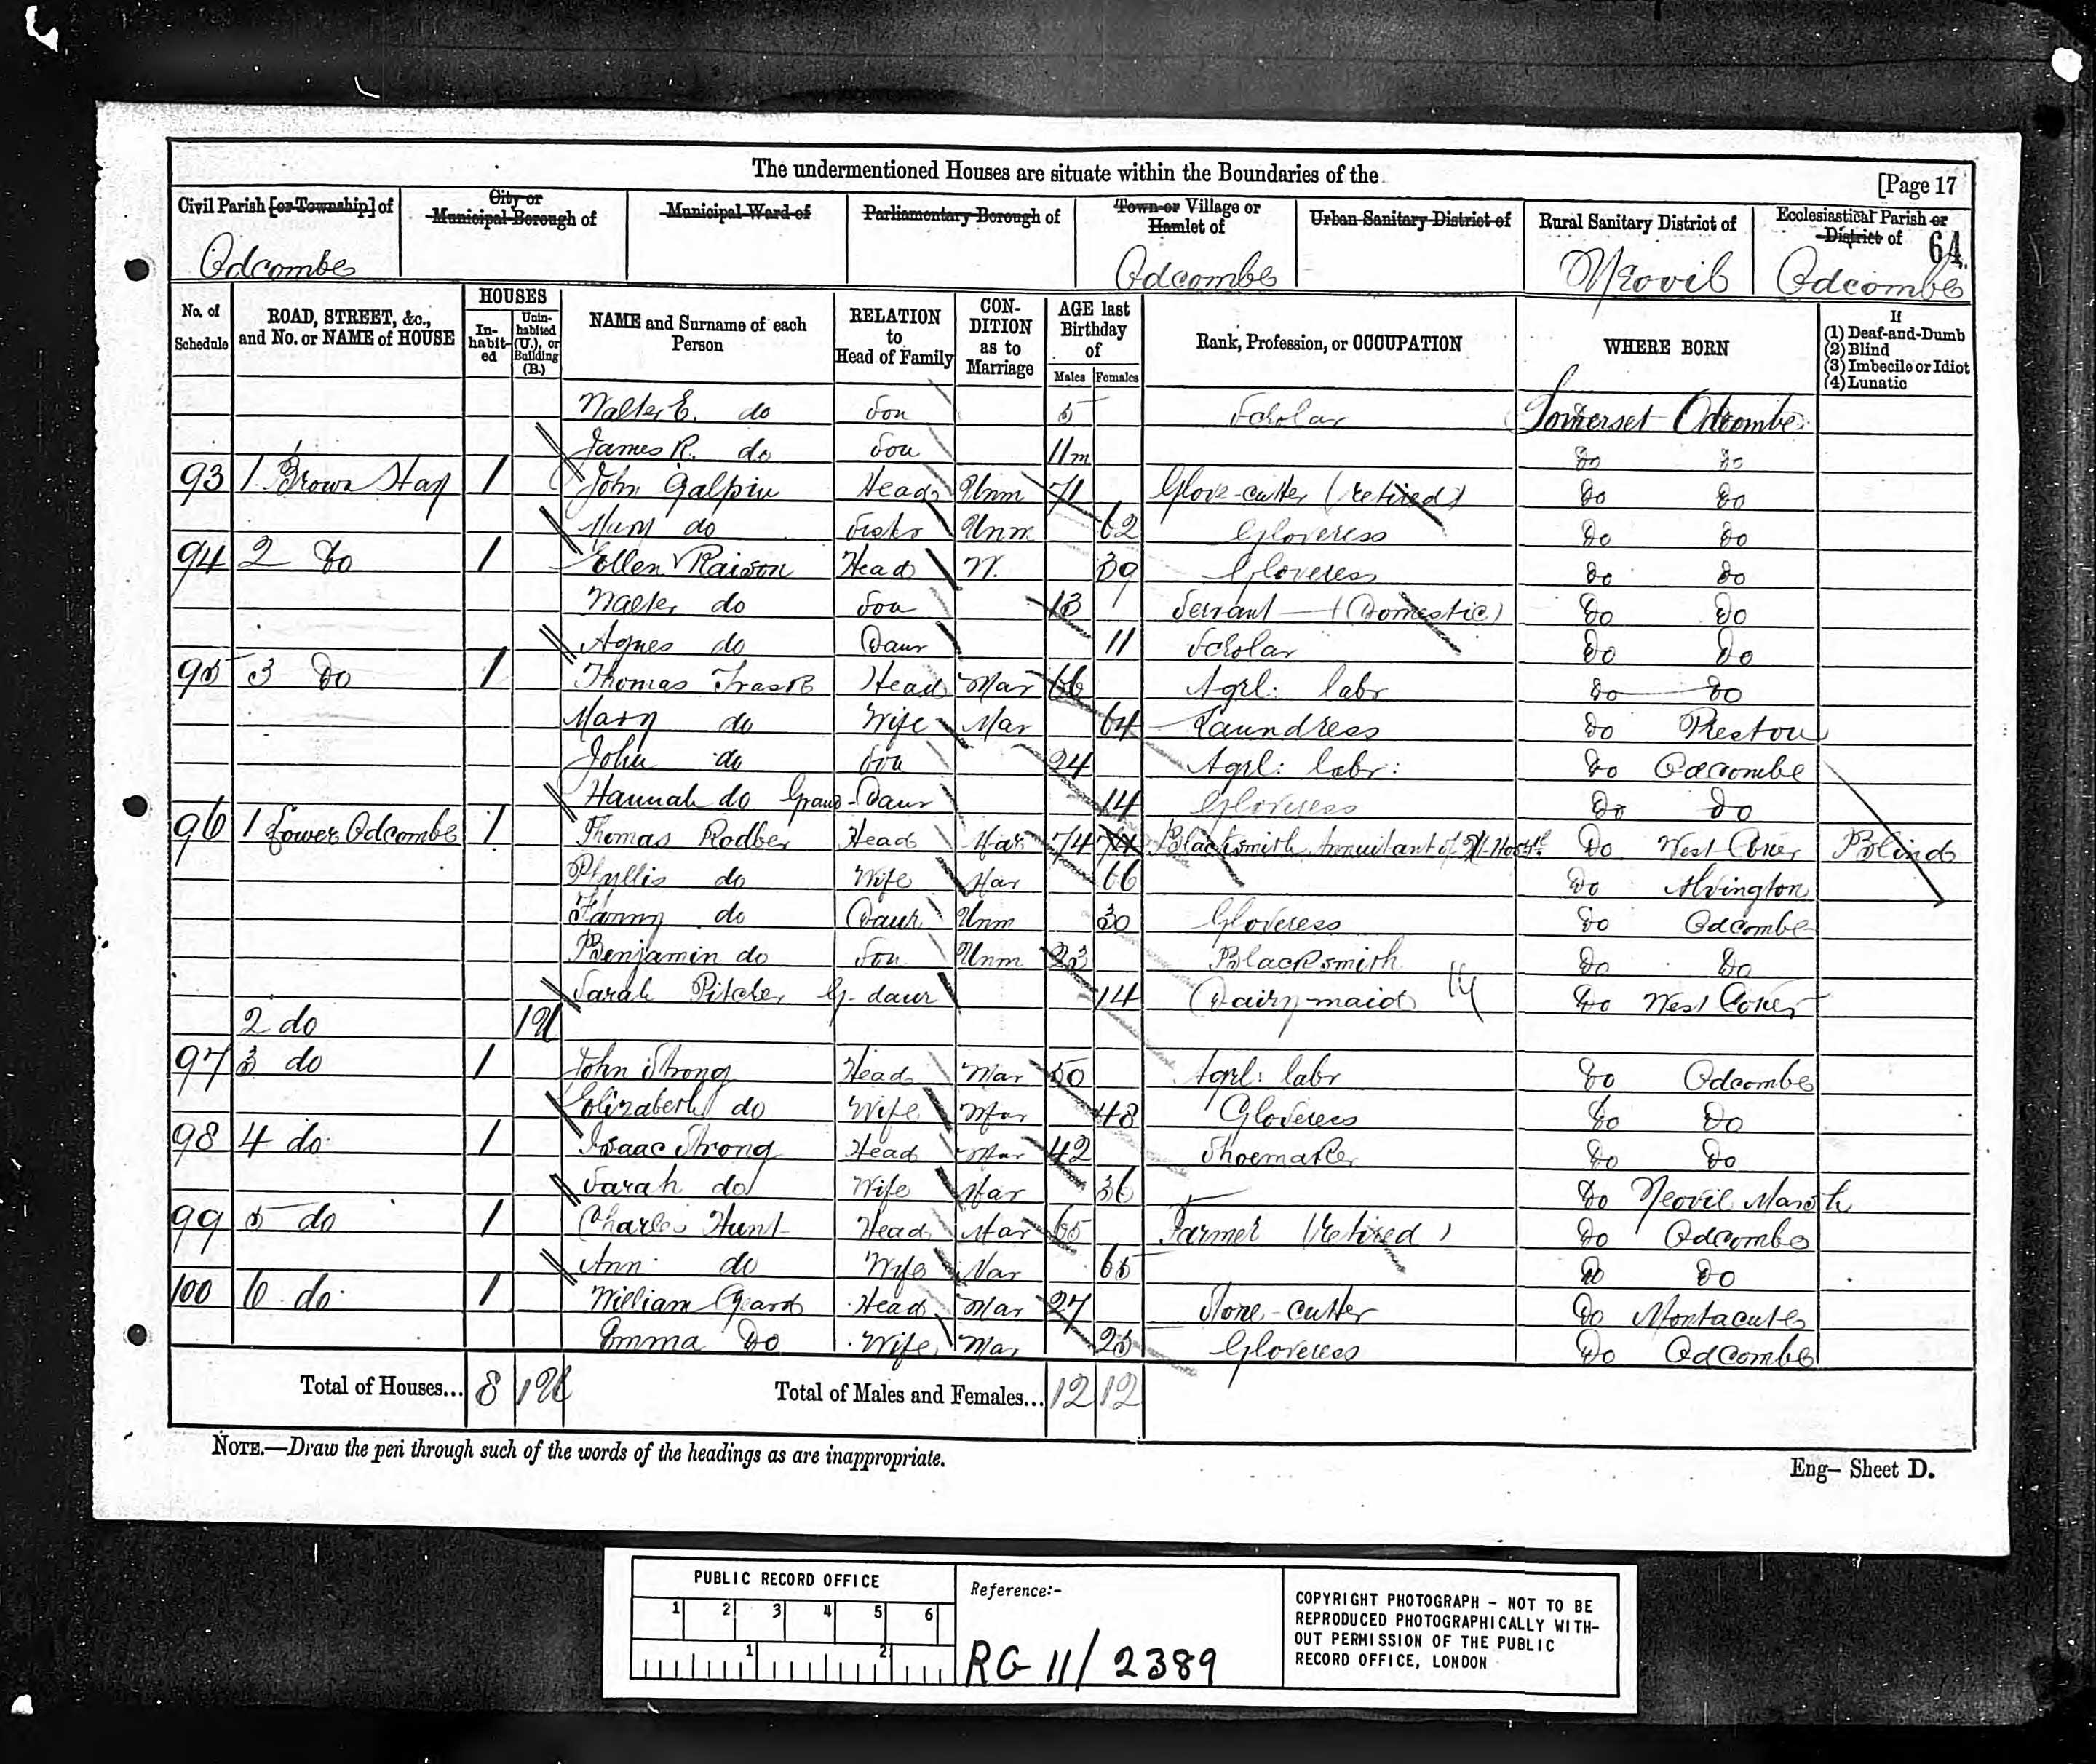 The undermentioned Houses are situate within the Boundaries of the
[Page 17
Civil Parish [or Township] of
City or Municipal Borough of
Municipal Ward of
Parliamentary Borough of
Town or Village or Hamlet of
Urban Sanitary District of
Rural Sanitary District of
Ecclesiastical Parish or District of
64
Odcombe Odcombe Yeovil Odcombe
No. of Schedule
ROAD, STREET, &c., and No. or NAME of HOUSE
HOUSES
In-habit-ed
Unin-habited (U.), or Building (B.)
NAME and Surname of each Person
RELATION to Head of Family
CON-DITION as to Marriage
AGE last Birthday of
Males Females
Rank, Profession, or OCCUPATION
WHERE BORN
If
(1) Deaf-and-Dumb
(2) Blind
(3) Imbecile or Idiot
(4) Lunatic
Walter E. do Son 5 Scholar Somerset Odcombe
James R. do Son 11m Do Do
93 1 Brown Hay 1 John Galpin Head Unm 71 Glove-cutter (retired) Do Do
Mary do Sister Unm 62 Gloveress Do Do
94 2 Do 1 Ellen Raison Head W. 39 Gloveress Do Do
Walter do Son 13 Servant (Domestic) Do Do
Agnes do Daur 11 Scholar Do Do
95 3 Do 1 Thomas Trask Head Mar 66 Agrl: labr Do Do
Mary do Wife Mar 64 Laundress Do Preston
John do Son 24 Agrl: labr: Do Odcombe
Hannah do Grand-Daur 14 Gloveress Do Do
96 1 Lower Odcombe 1 Thomas Rodber Head Mar 74 74 Blacksmith Annuitant of Do West Coker Blind
Phyllis do Wife Mar 66 Do Alvington
Fanny do Daur Unm 30 Gloveress Do Odcombe
Benjamin do Son Unm 23 Blacksmith Do Do
Sarah Pitcher G-daur 14 Dairy-maid 14 Do West Coker
2 do 1U
97 3 do 1 John Strong Head Mar 50 Agrl: labr Do Odcombe
Elizabeth do Wife Mar 48 Gloveress Do Do
98 4 do 1 Isaac Strong Head Mar 42 Shoemaker Do Do
Sarah do Wife Mar 36 Do Yeovil Marsh
99 5 do 1 Charles Hunt Head Mar 65 Farmer (retired) Do Odcombe
Ann do Wife Mar 65 Do Do
100 6 do 1 William Geard Head Mar 27 Stone-cutter Do Montacute
Emma Do Wife Mar 25 Gloveress Do Odcombe
Total of Houses... 8 1U Total of Males and Females... 12 12
NOTE.—Draw the pen through such of the words of the headings as are inappropriate.
Eng– Sheet D.
PUBLIC RECORD OFFICE
1 2 3 4 5 6
1 2
Reference:-
RG 11/2389
COPYRIGHT PHOTOGRAPH - NOT TO BE
REPRODUCED PHOTOGRAPHICALLY WITH-
OUT PERMISSION OF THE PUBLIC
RECORD OFFICE, LONDON